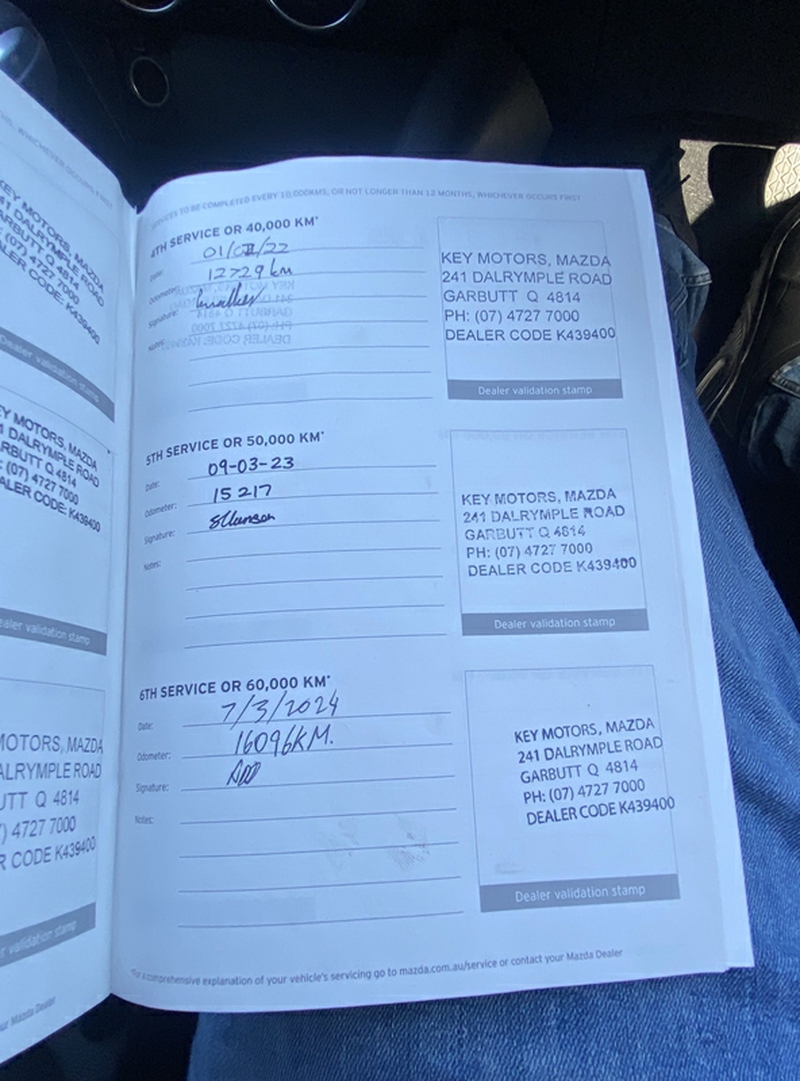 SERVICES TO BE COMPLETED EVERY 10,000KMS, OR NOT LONGER THAN 12 MONTHS, WHICHEVER OCCURS FIRST
4TH SERVICE OR 40,000 KM*
Date:
12729km
Odometer:
Signature:
Notes:
KEY MOTORS, MAZDA
241 DALRYMPLE ROAD
GARBUTT Q 4814
PH: (07) 4727 7000
DEALER CODE K439400
Dealer validation stamp
5TH SERVICE OR 50,000 KM*
Date: 09-03-23
Odometer: 15217
Signature:
Notes:
KEY MOTORS, MAZDA
241 DALRYMPLE ROAD
GARBUTT Q 4814
PH: (07) 4727 7000
DEALER CODE K439400
Dealer validation stamp
6TH SERVICE OR 60,000 KM*
Date: 7/3/2024
Odometer: 16096KM.
Signature:
Notes:
KEY MOTORS, MAZDA
241 DALRYMPLE ROAD
GARBUTT Q 4814
PH: (07) 4727 7000
DEALER CODE K439400
Dealer validation stamp
*For a comprehensive explanation of your vehicle's servicing go to mazda.com.au/service or contact your Mazda Dealer
WHICHEVER OCCURS FIRST
KEY MOTORS, MAZDA
DALRYMPLE ROAD
GARBUTT Q 4814
(07) 4727 7000
CODE K439400
Dealer validation stamp
MOTORS, MAZDA
DALRYMPLE ROAD
Q 4814
(07) 4727 7000
CODE: K439400
validation stamp
MOTORS, MAZDA
DALRYMPLE ROAD
Q 4814
4727 7000
CODE K439400
validation stamp
Mazda Dealer